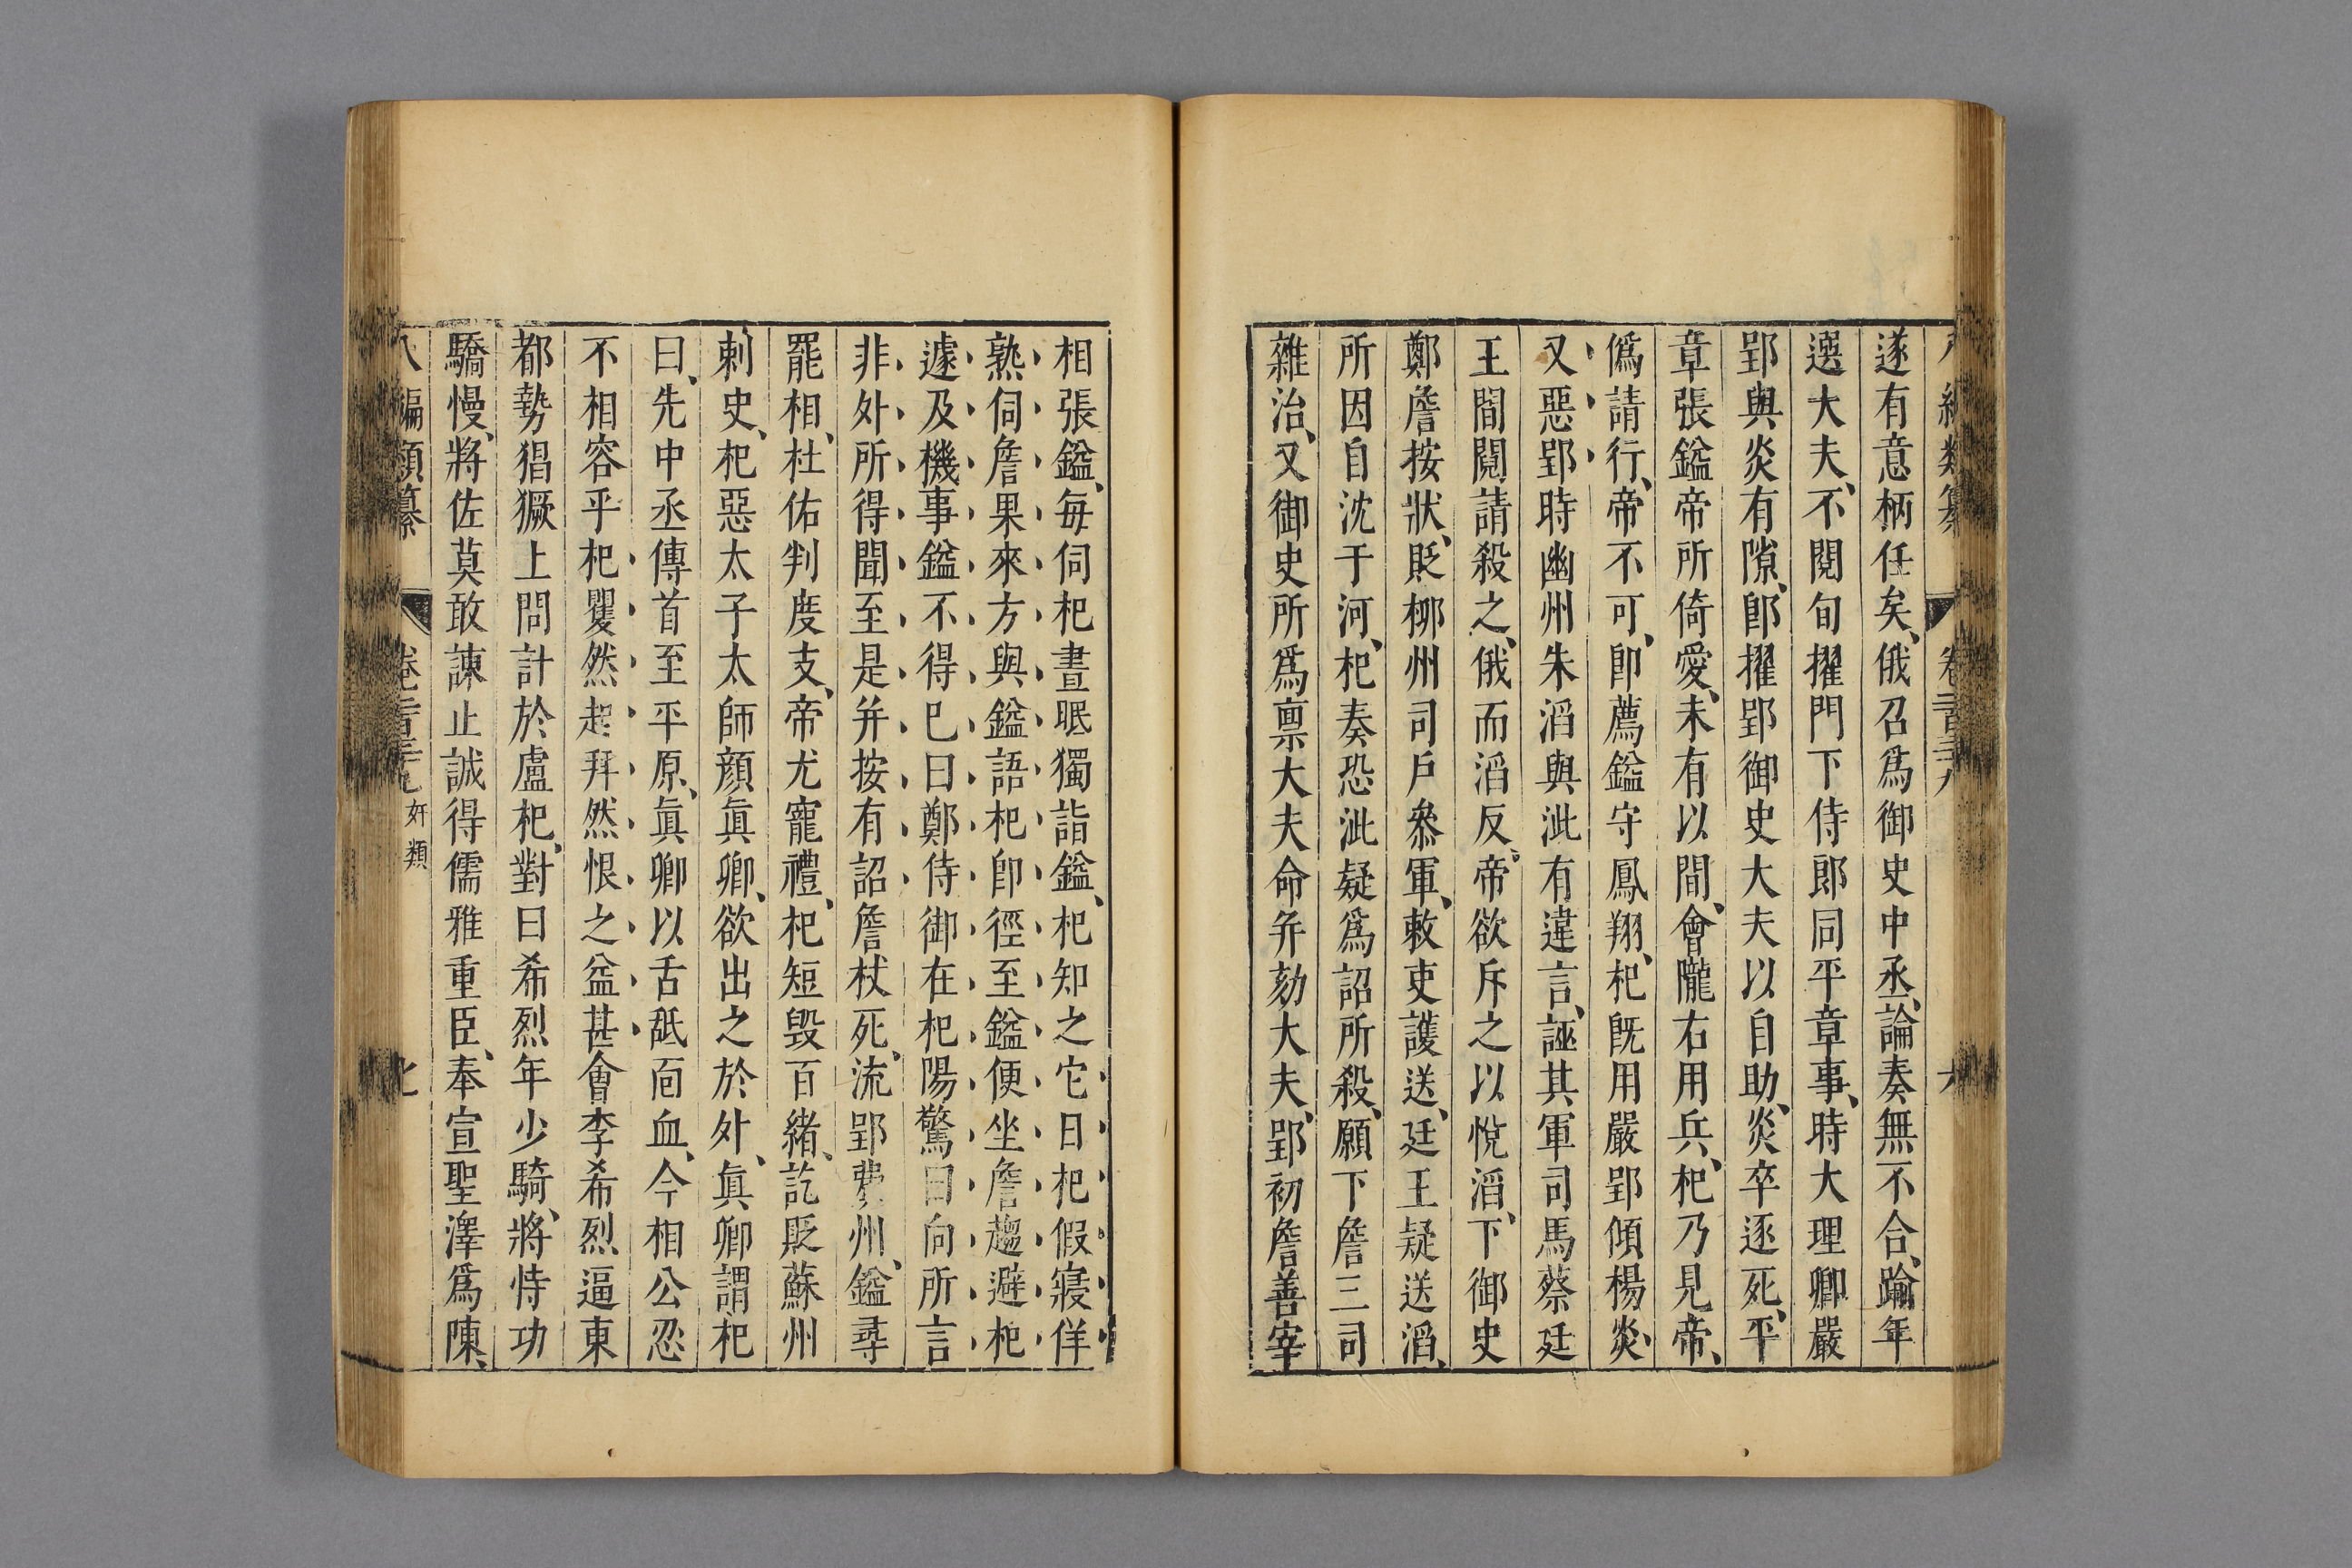 遂有意柄任矣、俄召爲御史中丞、論奏無不合、踰年
選大夫、不閱旬擢門下侍郎同平章事、時大理卿嚴
郢與炎有隙、卽擢郢御史大夫以自助、炎卒逐死、平
章張鎰帝所倚愛、未有以間、會隴右用兵、杞乃見帝、
僞請行、帝不可、卽薦鎰守鳳翔、杞旣用嚴郢傾楊炎、
又惡郢時幽州朱滔與泚有違言、誣其軍司馬蔡廷
王間閱請殺之、俄而滔反、帝欲斥之以悅滔、下御史
鄭詹按狀、貶栁州司戶叅軍、敕吏護送、廷王疑送滔、
所因自沈于河、杞奏恐泚疑爲詔所殺、願下詹三司
雜治、又御史所爲禀大夫命并劾大夫、郢初詹善宰
相張鎰、毎伺杞晝眠獨詣鎰、杞知之它日杞假寢佯
熟伺詹果來方與鎰語杞卽徑至鎰便坐詹趨避杞
遽及機事鎰不得已曰鄭侍御在杞陽驚曰向所言
非外所得聞至是并按有詔詹杖死、流郢費州、鎰尋
罷相、杜佑判度支、帝尤寵禮、杞短毁百緒、訖貶蘇州
刺史、杞惡太子太師顔眞卿、欲出之於外、眞卿謂杞
曰、先中丞傳首至平原、眞卿以舌舐面血、今相公忍
不相容乎杞矍然起拜然恨之益甚會李希烈逼東
都勢猖獗上問計於盧杞、對曰希烈年少驍、將恃功
驕慢、將佐莫敢諫止誠得儒雅重臣、奉宣聖澤爲陳、
八編類纂 卷二百三十九 奸類 七